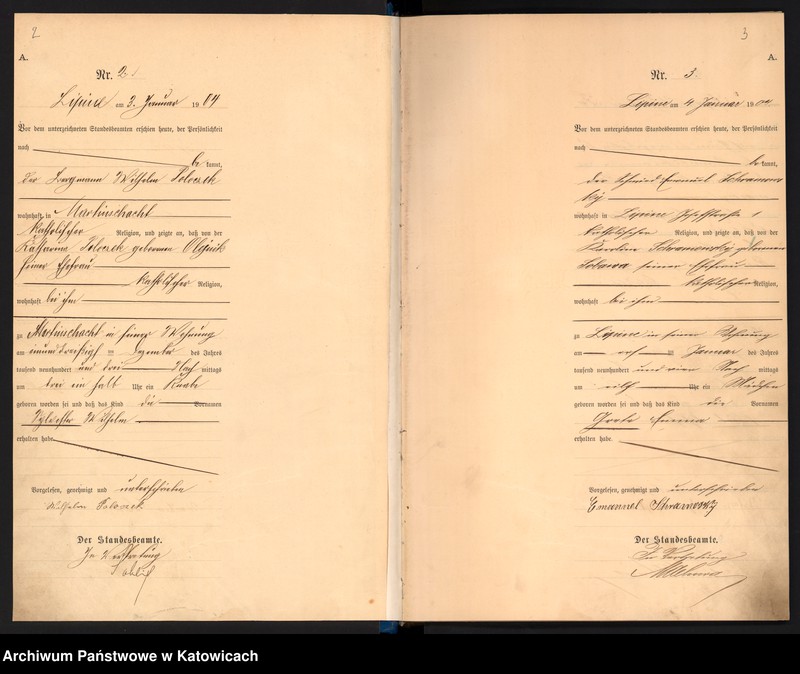 2
A.
Nr. 2.
Lipine am 3. Januar 1904
Vor dem unterzeichneten Standesbeamten erschien heute, der Persönlichkeit
nach
be kannt,
der Bergmann Wilhelm Poloczek
wohnhaft in Martinschacht
katholischer Religion, und zeigte an, daß von der
Katharina Poloczek geborenen
seiner Ehefrau
katholischer Religion,
wohnhaft bei ihm
zu Martinschacht in seiner Wohnung
am einunddreißigsten Dezember des Jahres
tausend neunhundert und drei Nach mittags
um drei ein halb Uhr ein Knabe
geboren worden sei und daß das Kind die Vornamen
Sylvester Wilhelm
erhalten habe.
Vorgelesen, genehmigt und unterschrieben
Wilhelm Poloczek
Der Standesbeamte.
In Vertretung
3
A.
Nr. 3.
Lipine am 4 Januar 1904
Vor dem unterzeichneten Standesbeamten erschien heute, der Persönlichkeit
nach
be kannt,
der Schmied Emanuel
wohnhaft in Lipine 1
katholischer Religion, und zeigte an, daß von der
geborenen
seiner Ehefrau
katholischer Religion,
wohnhaft bei ihm
zu Lipine in seiner Wohnung
am Januar des Jahres
tausend neunhundert und vier Nach mittags
um Uhr ein Mädchen
geboren worden sei und daß das Kind die Vornamen
Emma
erhalten habe.
Vorgelesen, genehmigt und unterschrieben
Emanuel
Der Standesbeamte.
In Vertretung
Archiwum Państwowe w Katowicach